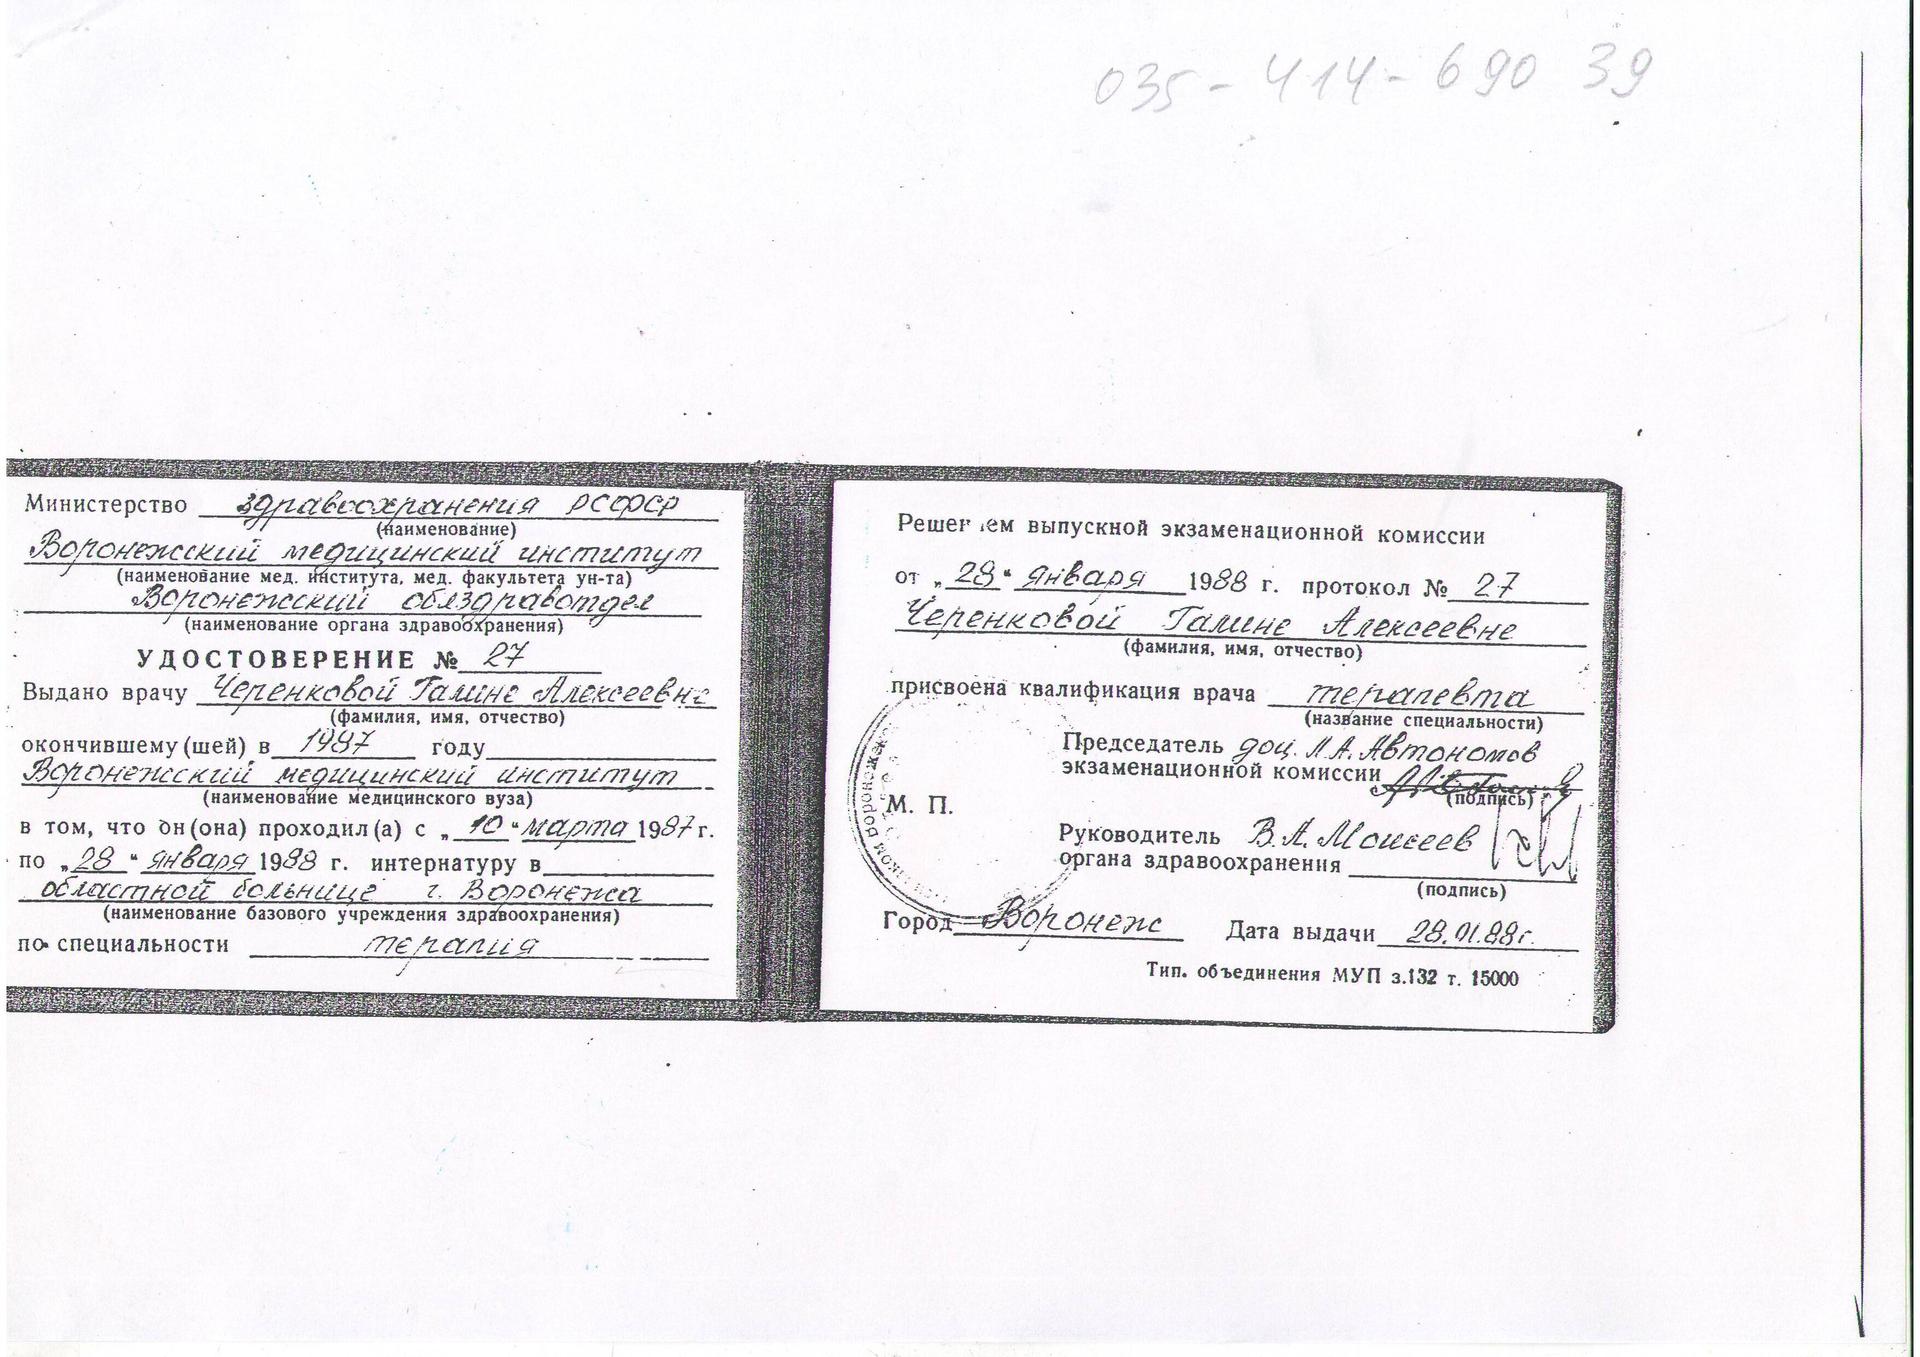 035-414-690 39
Министерство здравоохранения РСФСР
(наименование)
Воронежский медицинский институт
(наименование мед. института, мед. факультета ун-та)
Воронежский облздравотдел
(наименование органа здравоохранения)
УДОСТОВЕРЕНИЕ № 27
Выдано врачу Черенковой Галине Алексеевне
(фамилия, имя, отчество)
окончившему(шей) в 1987 году
Воронежский медицинский институт
(наименование медицинского вуза)
в том, что он(она) проходил(а) с „10" марта 1987 г.
по „28" января 1988 г. интернатуру в
областной больнице г. Воронежа
(наименование базового учреждения здравоохранения)
по специальности терапия
Решением выпускной экзаменационной комиссии
от „28" января 1988 г. протокол № 27
Черенковой Галине Алексеевне
(фамилия, имя, отчество)
присвоена квалификация врача терапевта
(название специальности)
Председатель доц. Л.А. Автономов
экзаменационной комиссии
(подпись)
М. П.
Руководитель В.А. Моисеев
органа здравоохранения
(подпись)
Город Воронеж Дата выдачи 28.01.88г.
Тип. объединения МУП з.132 т. 15000